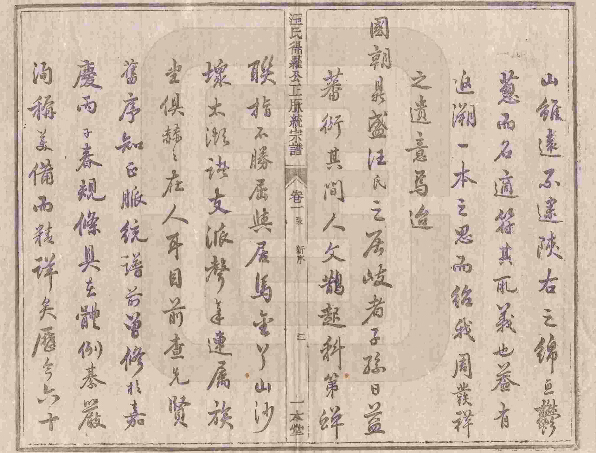 山雖遠不逮陝右之綿亘鬱
蔥而名適符其取義也蓋有
追溯一本之思而紹我周發祥
之遺意焉迨
國朝鼎盛汪氏之居岐者子孫日益
蕃衍其間人文鵲起科第蟬
汪氏
正脈統宗譜
卷一
一本堂
聯指不勝屈與居馬金了山沙
壤大溪諸支派聲華連屬族
望俱赫赫在人耳目前查先賢
舊序知正脈統譜前曾修於嘉
慶丙子春規條具在體例綦嚴
洵稱美備而精詳矣歷今六十